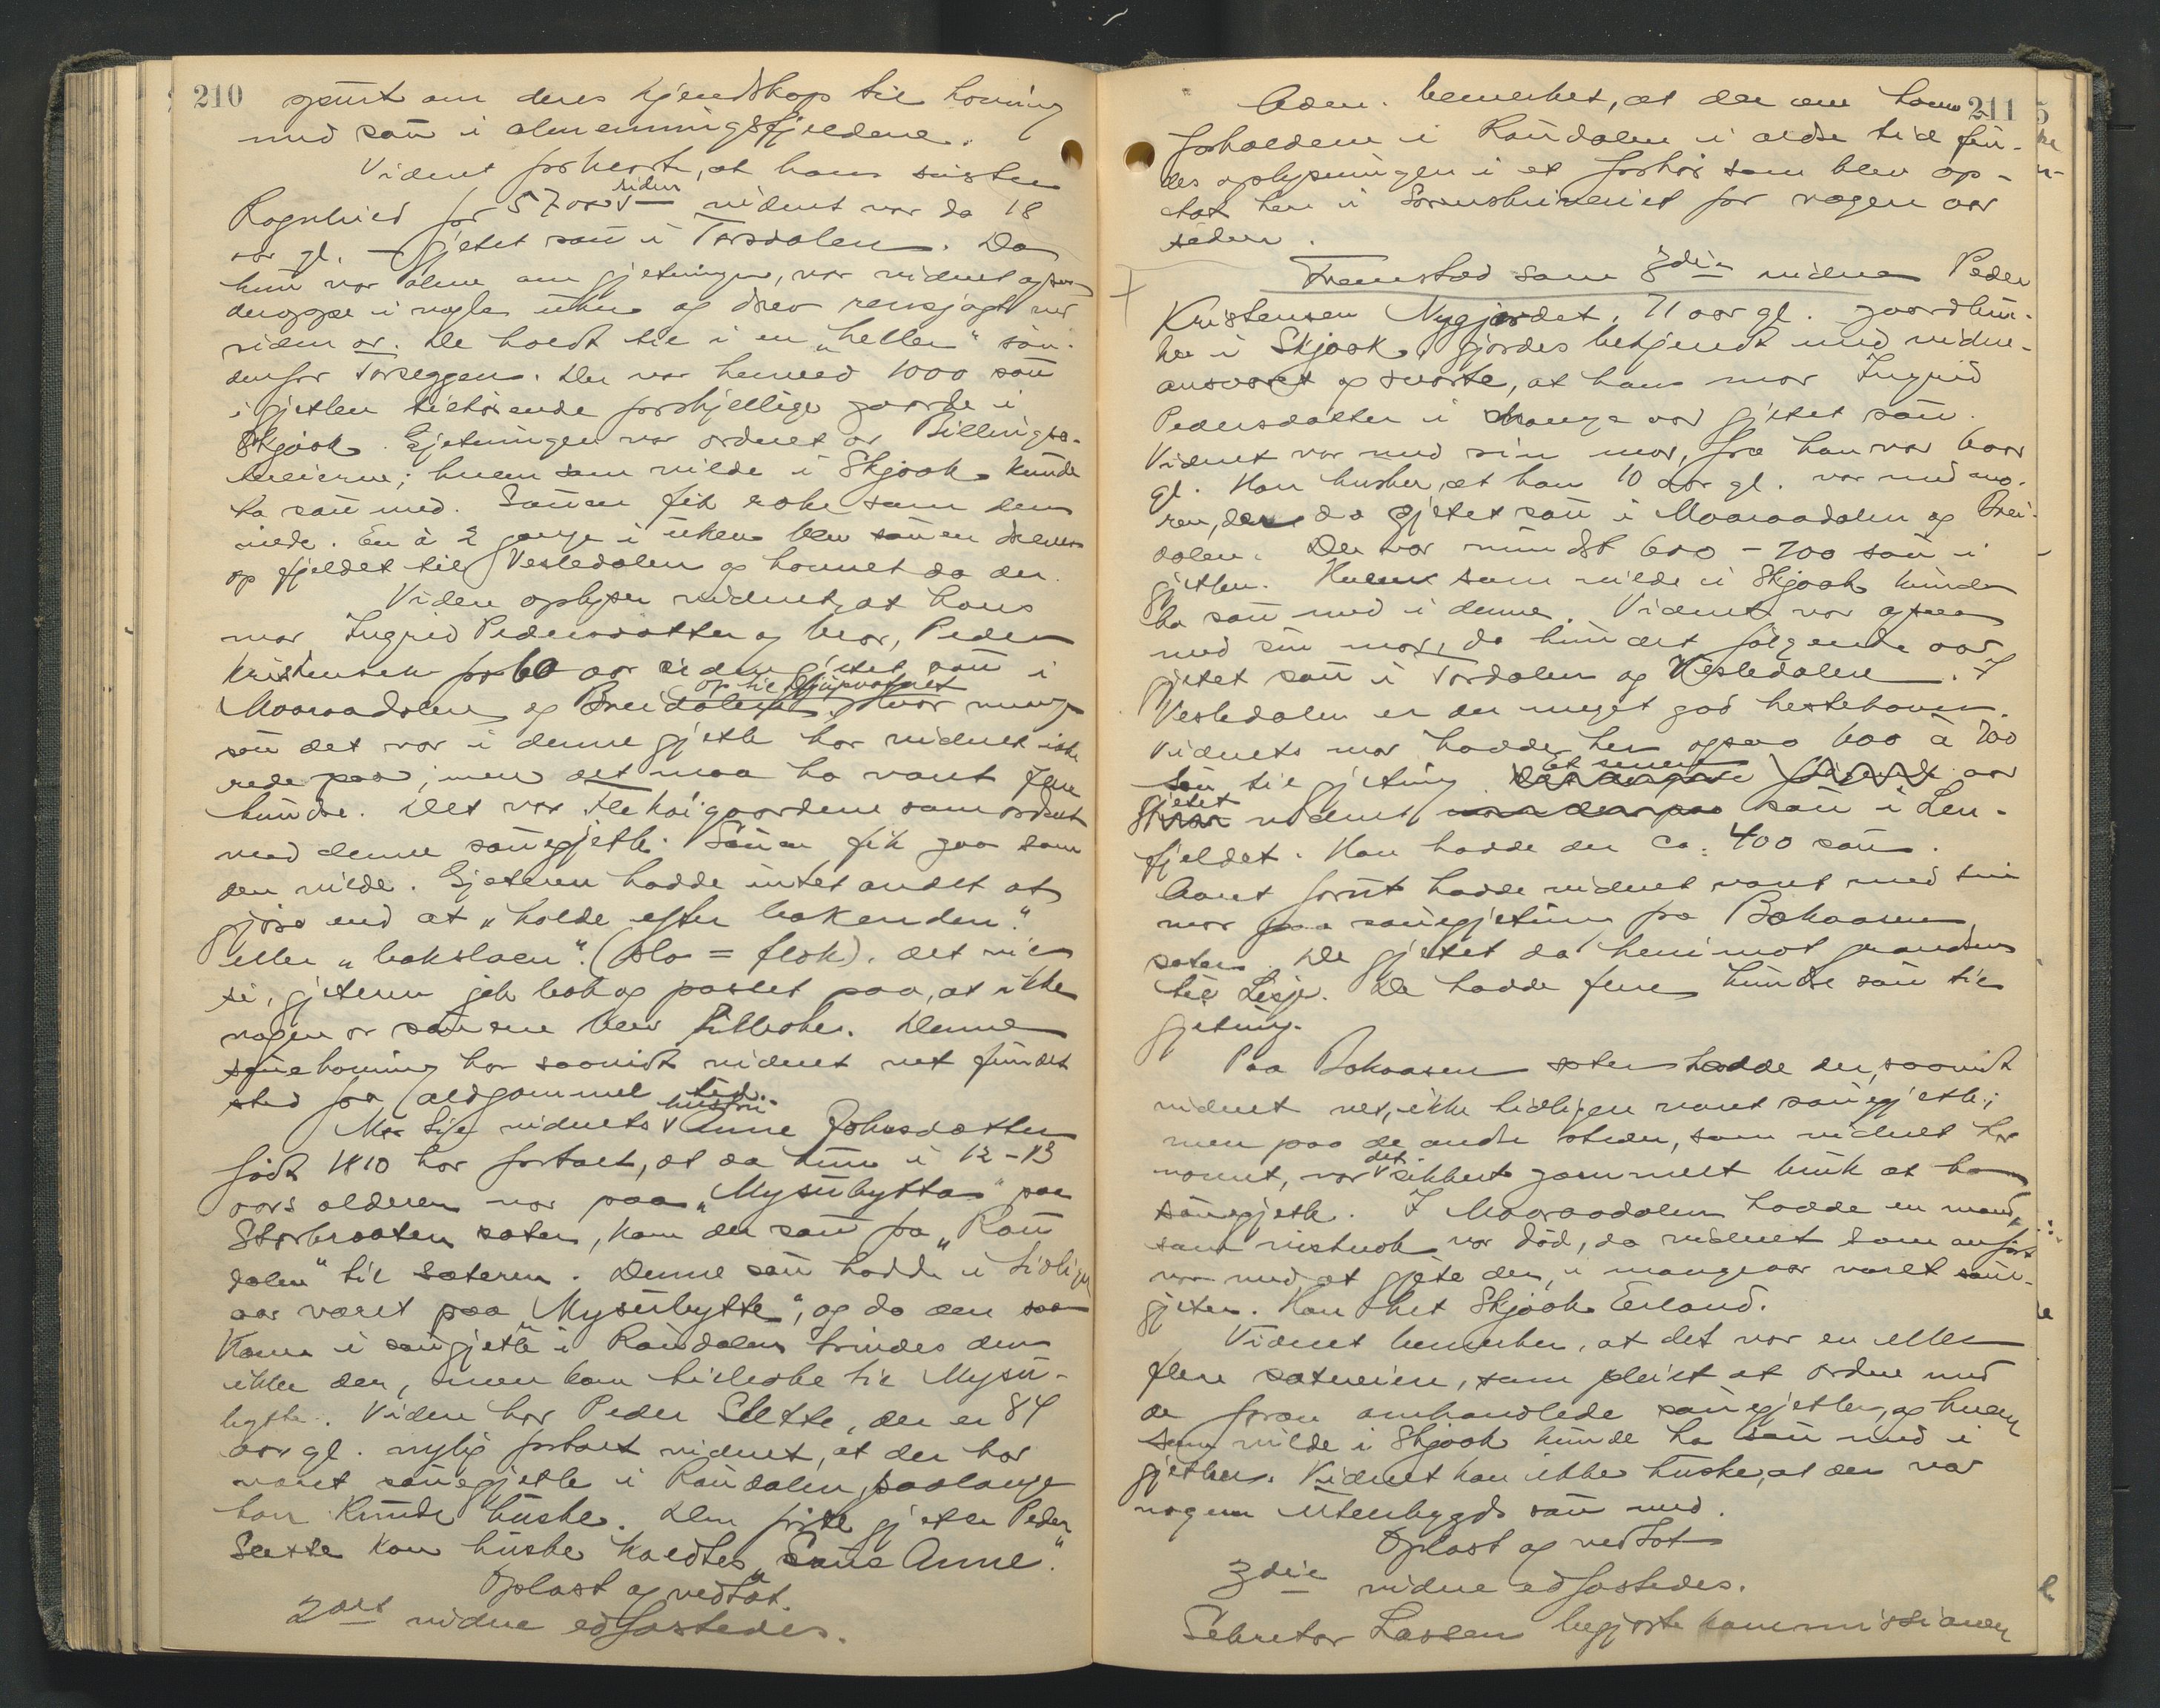 210
spurt om deres kjendskap til havning
med sau i almenningsfjeldene.
Vidnet forklarte, at hans søster
Ragnhild for 57 aar siden vidnet var da 18
aar gl. gjetet sau i Torsdalen. Da
hun var alene om gjetningen, var vidnet ogsaa
deroppe i nogle uker og drev rensjagt ved
siden av. De holdt til i en "heller" søn-
denfor Torseggen. Der var henved 1000 sau
i gjetlen tilhørende forskjellige gaarde i
Skjaak. Gjetningen var ordnet av Billingsæ-
tereierne; hvem som vilde i Skjaak kunde
ha sau med. Sauen fik rake som den
vilde. En à 2 gange i uken blev sauen drevet
op fjeldet til Vesledalen og havnet da der.
Videre oplyser vidnet, at hans
mor Ingrid Pedersdatter og bror, Peder
Kristensen for 60 aar siden gjetet sau i
Maaraadalen og Breidalen op til Djupvatnet. Hvor mange
sau det var i denne gjetle har vidnet ikke
rede paa; men det maa ha vært flere
hundre. Det var de Høigaardene som ordnet
med denne sauegjetle. Sauen fik gaa som
den vilde. Gjeteren hadde intet andet at
gjøre end at "holde efter bakenden"
eller "bakslaen". (sla = flok). det vil
si, gjeteren gik bak og passet paa, at ikke
nogen av sauene blev tilbake. Denne
sauehavning har saavidt vidnet vet fundet
sted fra ældgammel tid.
Mor til vidnets hustru Anne Johnsdatter
født 1810 har fortalt, at da hun i 12-13
aars alderen var paa "Mysubytta" paa
Storbraaten sæter, kom der sau fra "Rau
dalen" til sæteren. Denne sau hadde i tidligere
aar været paa "Mysubytte", og da den saa
kom i saugjetle i Raudalen trivdes den
ikke der, men kom tilbake til Mysu-
bytte. Videre har Peder Slette, der er 84
aar gl. nylig fortalt vidnet, at der har
været sauegjetle i Raudalen, saalænge
han kunde huske. Den første gjeter Peder
Slette kan huske kaldtes "Saue Anne".
Oplæst og vedtat.
2det vidne edfæstedes.
211
Adm. bemerket, at der om havne
forholdene i Raudalen i ældre tid fin-
des oplysninger i et forhør som blev op-
tat her i Sorenskriveriet for nogen aar
siden.
Fremstod som 3die vidne Peder
Kristensen Nygjærdet, 71 aar gl. gaardbru-
ker i Skjaak, gjordes bekjendt med vidne-
ansvaret og svarte, at hans mor Ingrid
Pedersdatter i mange aar gjetet sau.
Vidnet var med sin mor, fra han var 6 aar
gl. Han husker, at han 10 aar gl. var med mo-
ren, der da gjetet sau i Maaraadalen og Brei-
dalen. Der var mindst 600 - 700 sau i
gjetlen. Hvem som vilde i Skjaak kunde
ha sau med i denne. Vidnet var ogsaa
med sin mor, da hun det følgende aar
gjetet sau i Tordalen og Vesledalen. I
Vesledalen er der meget god hestehavn.
Vidnets mor hadde her ogsaa 600 à 700
sau til gjeting. Et senere aar
gjetet vidnet sau i Len-
fjeldet. Han hadde der ca: 400 sau.
Aaret forut hadde vidnet været med sin
mor paa sauegjeting fra Bakaasen
sæter. De gjetet da henimot grænsen
til Lesje. De hadde flere hundre sau til
gjeting.
Paa Bakaasen sæter hadde der, saavidt
vidnet vet, ikke tidligere været sauegjetle;
men paa de andre steder, som vidnet har
nævnt, var det sikkert gammelt bruk at ha
sauegjetle. I Maaraadalen hadde en mand,
som vistnok var død, da vidnet som anført
var med at gjete der, i mange aar været saue-
gjeter. Han het Skjaak Erland.
Vidnet bemerker, at det var en eller
flere sætereiere, som pleiet at ordne med
de foran omhandlede sauegjetler, og hvem
som vilde i Skjaak kunde ha sau med i
gjetlen. Vidnet kan ikke huske, at der var
nogen utenbygds sau med.
Oplæst og vedtat
3die vidne edfæstedes.
Sekretær Lassen begjærte kommissionen